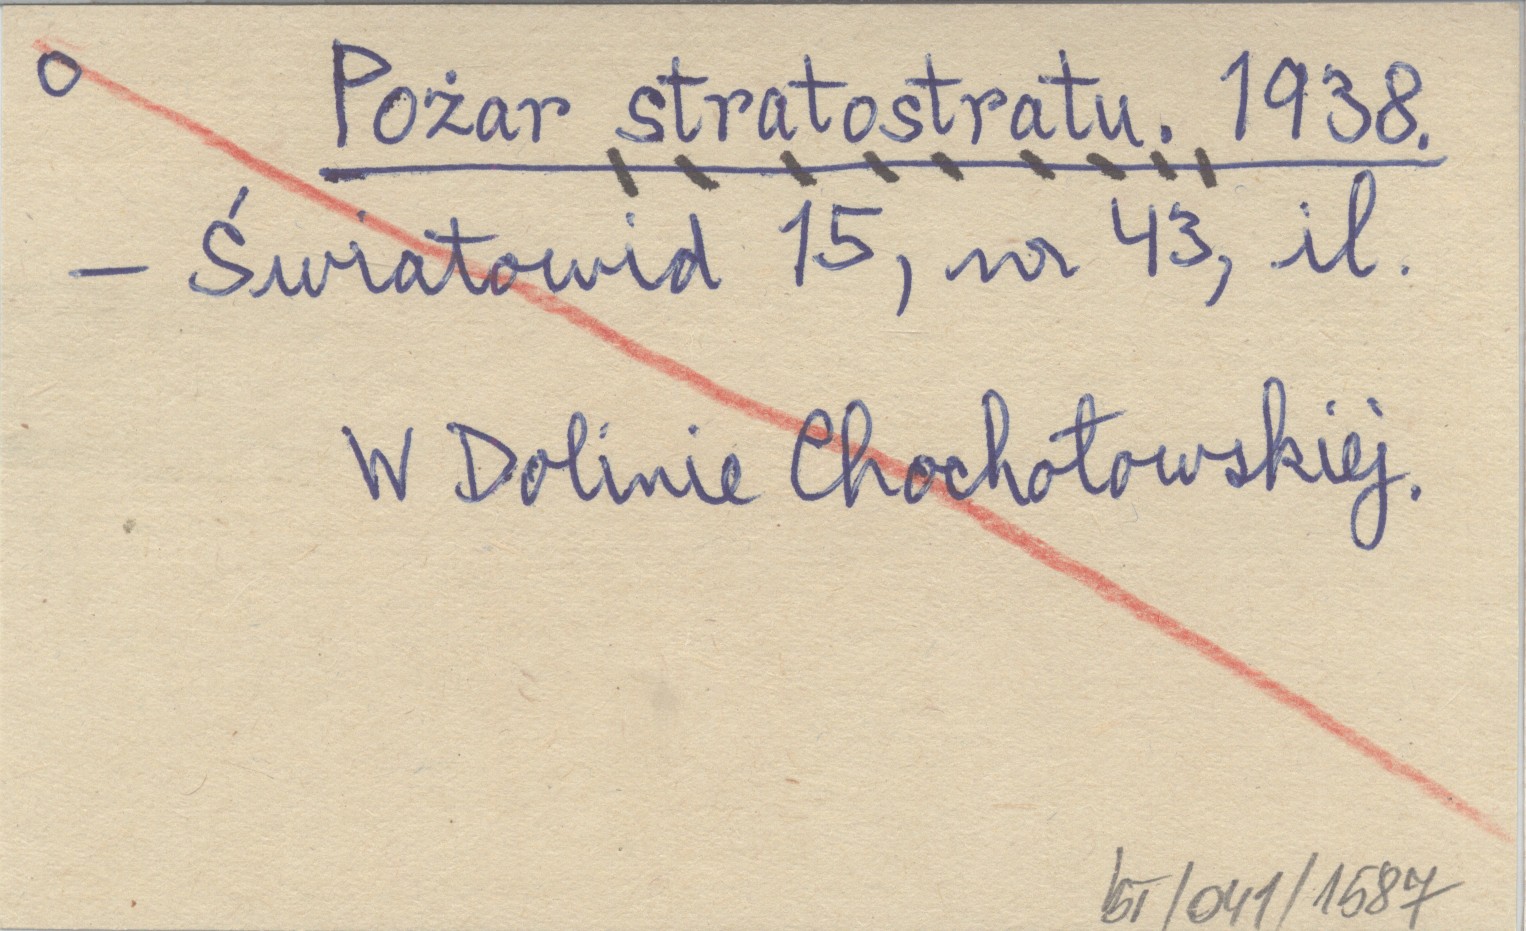 o Pożar stratostratu. 1938.
– Światowid 15, nr 43, il.
W Dolinie Chochołowskiej.
/041/1587